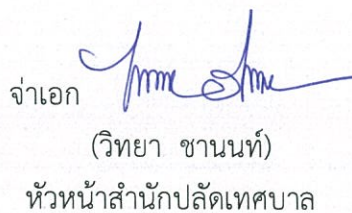 จ่าเอก
(วิทยา ชานนท์)
หัวหน้าสำนักปลัดเทศบาล